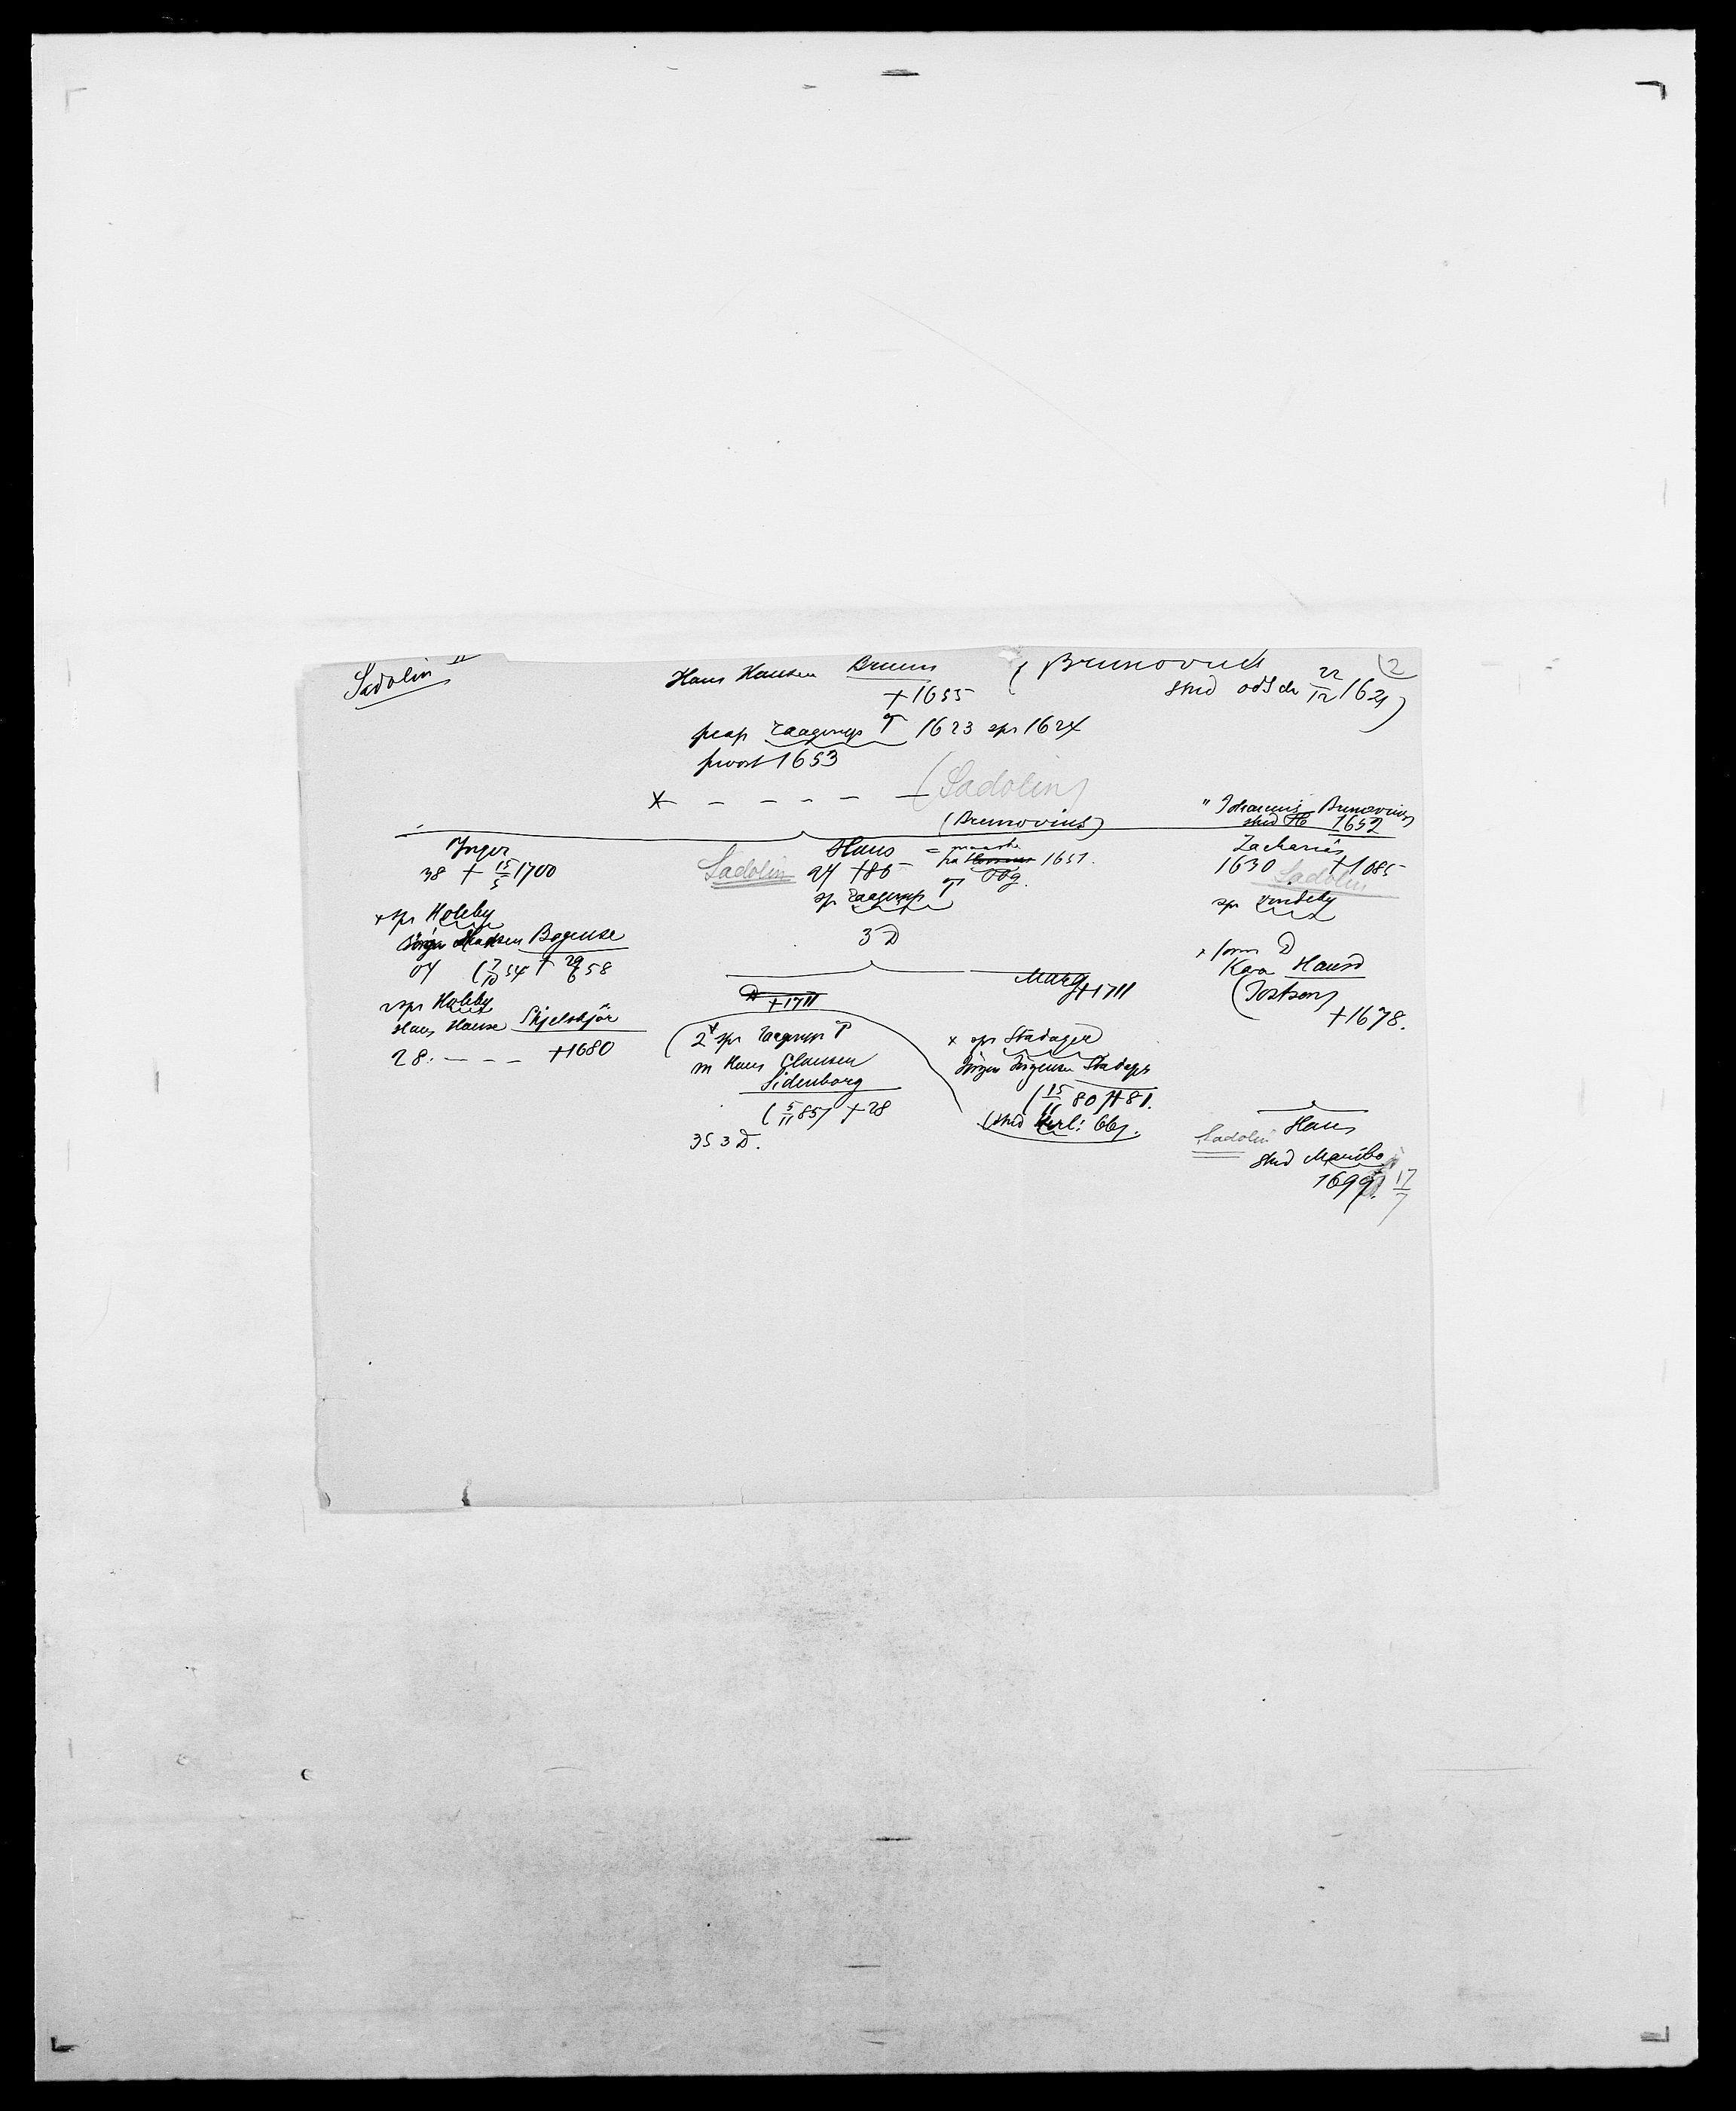 Sadolin II
Hans Hansen Bruun ( Brunovius (2
+ 1655 stud Odse 22/12 1621)
pcap Taagerups T 1623 spr 1624
provst 1653
x - - - - - (Sadolin)
(Brunovius)
"Johannis Brunovius
stud 1652
Inger
38 + 15/5 1700
x spr Holeby
Jörgen Madsen Bogense
04 (7/10 54 + 29/6 58
2 spr Holeby
Hans Hanse Skjelskjör
28. - - - +1680
Sadolin Hans = maaske
24 +86 fra 1651.
sp Taagerup T
3 D
D
+1711
2x spr Taagerups T
m Hans Clausen
Sidenborg
(5/11 85) +28
3S 3D.
Marg
+1711
x spr Stadager
Jörgen Jörgensen Stadager
(15/11 80) +81.
(stud 66).
Zacharies
1630 +1685
Sadolin
spr Vindeby
x D
Kar Hansd
(Tostsen)
+1678.
Sadolin Hans
stud Maribo
1699. 17/7